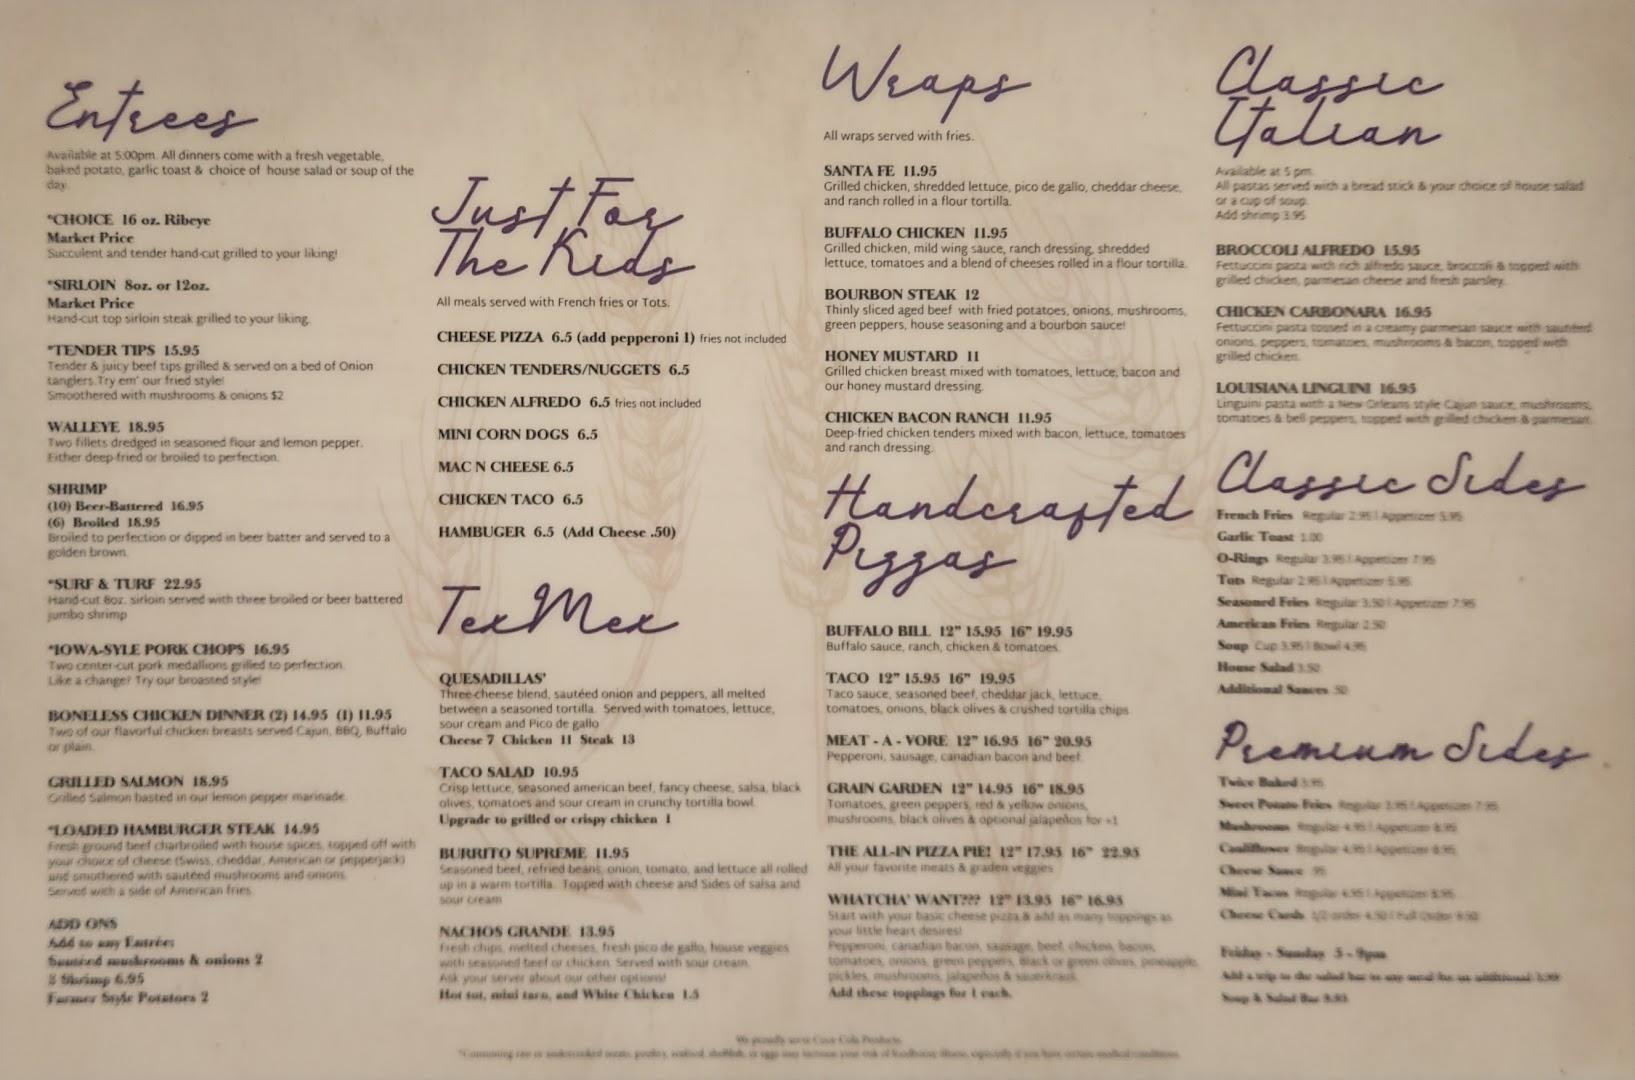 Entrees
Available at 5:00pm. All dinners come with a fresh vegetable,
baked potato, garlic toast & choice of house salad or soup of the
day.
*CHOICE 16 oz. Ribeye
Market Price
Succulent and tender hand-cut grilled to your liking!
*SIRLOIN 8oz. or 12oz.
Market Price
Hand-cut top sirloin steak grilled to your liking.
*TENDER TIPS 15.95
Tender & juicy beef tips grilled & served on a bed of Onion
tanglers. Try em' our fried style!
Smoothered with mushrooms & onions $2
WALLEYE 18.95
Two fillets dredged in seasoned flour and lemon pepper.
Either deep-fried or broiled to perfection.
SHRIMP
(10) Beer-Battered 16.95
(6) Broiled 18.95
Broiled to perfection or dipped in beer batter and served to a
golden brown.
*SURF & TURF 22.95
Hand-cut 8oz. sirloin served with three broiled or beer battered
jumbo shrimp
*IOWA-SYLE PORK CHOPS 16.95
Two center-cut pork medallions grilled to perfection.
Like a change? Try our broasted style!
BONELESS CHICKEN DINNER (2) 14.95 (1) 11.95
Two of our flavorful chicken breasts served Cajun, BBQ, Buffalo
or plain.
GRILLED SALMON 18.95
Grilled Salmon basted in our lemon pepper marinade.
*LOADED HAMBURGER STEAK 14.95
Fresh ground beef charbroiled with house spices, topped off with
your choice of cheese (Swiss, cheddar, American or pepperjack)
and smothered with sautéed mushrooms and onions.
Served with a side of American fries.
ADD ONS
Add to any Entrée:
Sauteed mushrooms & onions 2
3 Shrimp 6.95
Farmer Style Potatoes 2
Just For
The Kids
All meals served with French fries or Tots.
CHEESE PIZZA 6.5 (add pepperoni 1) fries not included
CHICKEN TENDERS/NUGGETS 6.5
CHICKEN ALFREDO 6.5 fries not included
MINI CORN DOGS 6.5
MAC N CHEESE 6.5
CHICKEN TACO 6.5
HAMBUGER 6.5 (Add Cheese .50)
TexMex
QUESADILLAS'
Three-cheese blend, sautéed onion and peppers, all melted
between a seasoned tortilla. Served with tomatoes, lettuce,
sour cream and Pico de gallo
Cheese 7 Chicken 11 Steak 13
TACO SALAD 10.95
Crisp lettuce, seasoned american beef, fancy cheese, salsa, black
olives, tomatoes and sour cream in crunchy tortilla bowl.
Upgrade to grilled or crispy chicken 1
BURRITO SUPREME 11.95
Seasoned beef, refried beans, onion, tomato, and lettuce all rolled
up in a warm tortilla. Topped with cheese and Sides of salsa and
sour cream
NACHOS GRANDE 13.95
Fresh chips, melted cheeses, fresh pico de gallo, house veggies
with seasoned beef or chicken. Served with sour cream.
Ask your server about our other options!
Hot tot, mini taco, and White Chicken 1.5
Wraps
All wraps served with fries.
SANTA FE 11.95
Grilled chicken, shredded lettuce, pico de gallo, cheddar cheese,
and ranch rolled in a flour tortilla.
BUFFALO CHICKEN 11.95
Grilled chicken, mild wing sauce, ranch dressing, shredded
lettuce, tomatoes and a blend of cheeses rolled in a flour tortilla.
BOURBON STEAK 12
Thinly sliced aged beef with fried potatoes, onions, mushrooms,
green peppers, house seasoning and a bourbon sauce!
HONEY MUSTARD 11
Grilled chicken breast mixed with tomatoes, lettuce, bacon and
our honey mustard dressing.
CHICKEN BACON RANCH 11.95
Deep-fried chicken tenders mixed with bacon, lettuce, tomatoes
and ranch dressing.
Handcrafted
Pizzas
BUFFALO BILL 12" 15.95 16" 19.95
Buffalo sauce, ranch, chicken & tomatoes.
TACO 12" 15.95 16" 19.95
Taco sauce, seasoned beef, cheddar jack, lettuce,
tomatoes, onions, black olives & crushed tortilla chips
MEAT - A - VORE 12" 16.95 16" 20.95
Pepperoni, sausage, canadian bacon and beef.
GRAIN GARDEN 12" 14.95 16" 18.95
Tomatoes, green peppers, red & yellow onions,
mushrooms, black olives & optional jalapeños for +1
THE ALL-IN PIZZA PIE! 12" 17.95 16" 22.95
All your favorite meats & graden veggies
WHATCHA' WANT??? 12" 13.95 16" 16.95
Start with your basic cheese pizza & add as many toppings as
your little heart desires!
Pepperoni, canadian bacon, sausage, beef, chicken, bacon,
tomatoes, onions, green peppers, Black or green olives, pineapple,
pickles, mushrooms, jalapeños & sauerkraut.
Add these toppings for 1 each.
Classic
Italian
Available at 5 pm.
All pastas served with a bread stick & your choice of house salad
or a cup of soup.
Add shrimp 3.95
BROCCOLI ALFREDO 15.95
Fettuccini pasta with rich alfredo sauce, broccoli & topped with
grilled chicken, parmesan cheese and fresh parsley.
CHICKEN CARBONARA 16.95
Fettuccini pasta tossed in a creamy parmesan sauce with sautéed
onions, peppers, tomatoes, mushrooms & bacon, topped with
grilled chicken.
LOUISIANA LINGUINI 16.95
Linguini pasta with a New Orleans style Cajun sauce, mushrooms,
tomatoes & bell peppers, topped with grilled chicken & parmesan.
Classic Sides
French Fries Regular 2.95 | Appetizer 5.95
Garlic Toast 1.00
O-Rings Regular 3.95 | Appetizer 7.95
Tots Regular 2.95 | Appetizer 5.95
Seasoned Fries Regular 3.50 | Appetizer 7.95
American Fries Regular 2.50
Soup Cup 3.95 | Bowl 4.95
House Salad 3.50
Additional Sauces .50
Premium Sides
Twice Baked 3.95
Sweet Potato Fries Regular 3.95 | Appetizer 7.95
Mushrooms Regular 4.95 | Appetizer 8.95
Cauliflower Regular 4.95 | Appetizer 8.95
Cheese Sauce .95
Mini Tacos Regular 4.95 | Appetizer 8.95
Cheese Curds 1/2 order 4.50 | Full Order 8.50
Friday - Sunday 5 - 9pm
Add a trip to the salad bar to any meal for an additional 3.99
Soup & Salad Bar 9.95
We proudly serve Coca-Cola Products.
*Consuming raw or undercooked meats, poultry, seafood, shellfish, or eggs may increase your risk of foodborne illness, especially if you have certain medical conditions.